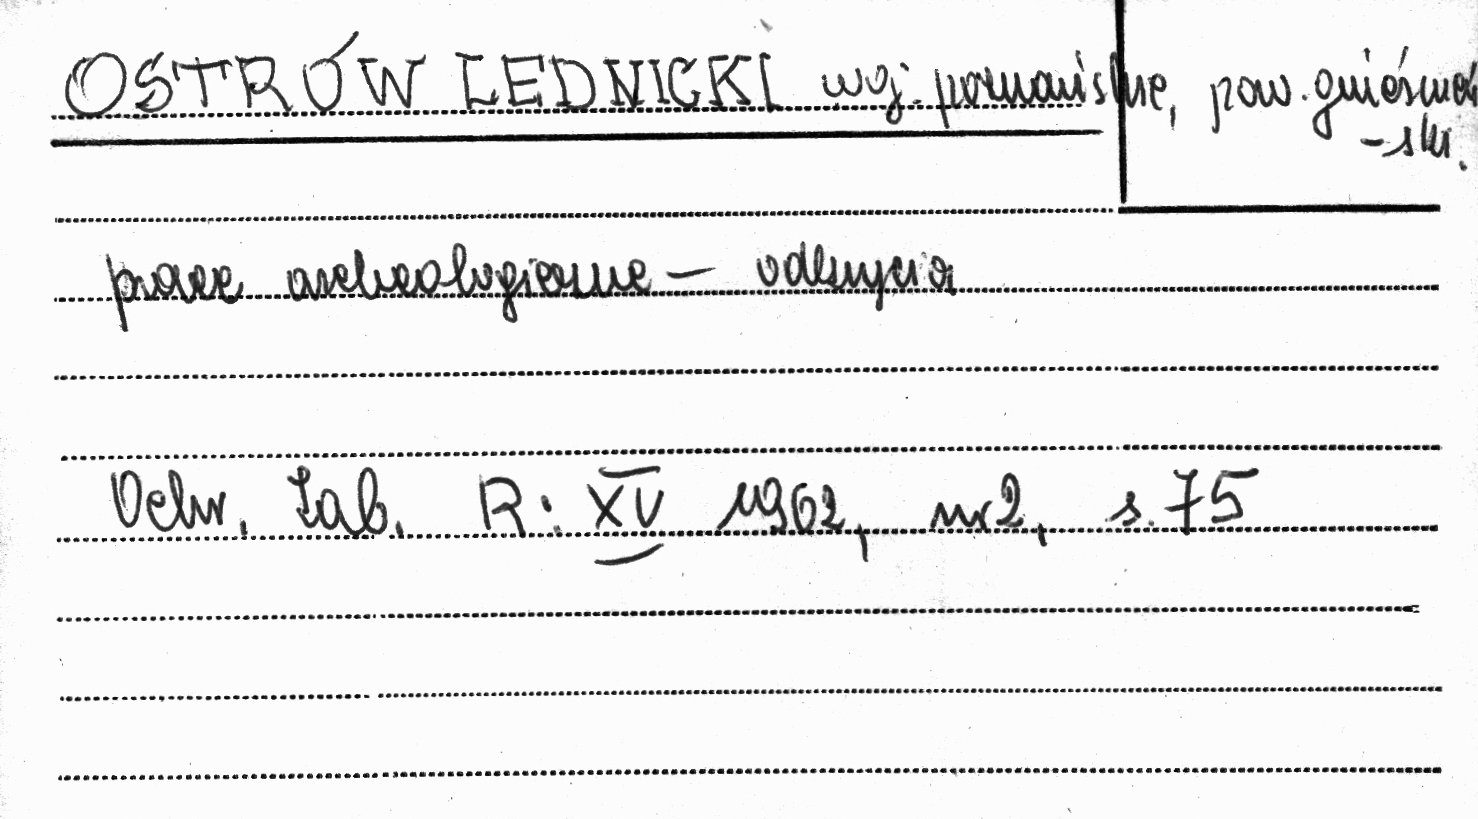 OSTRÓW LEDNICKI woj. poznańskie, pow. gnieźnień
-ski.
prace archeologiczne — odkrycia
Ochr. Zab. R: XV 1962, nr 2, s. 75